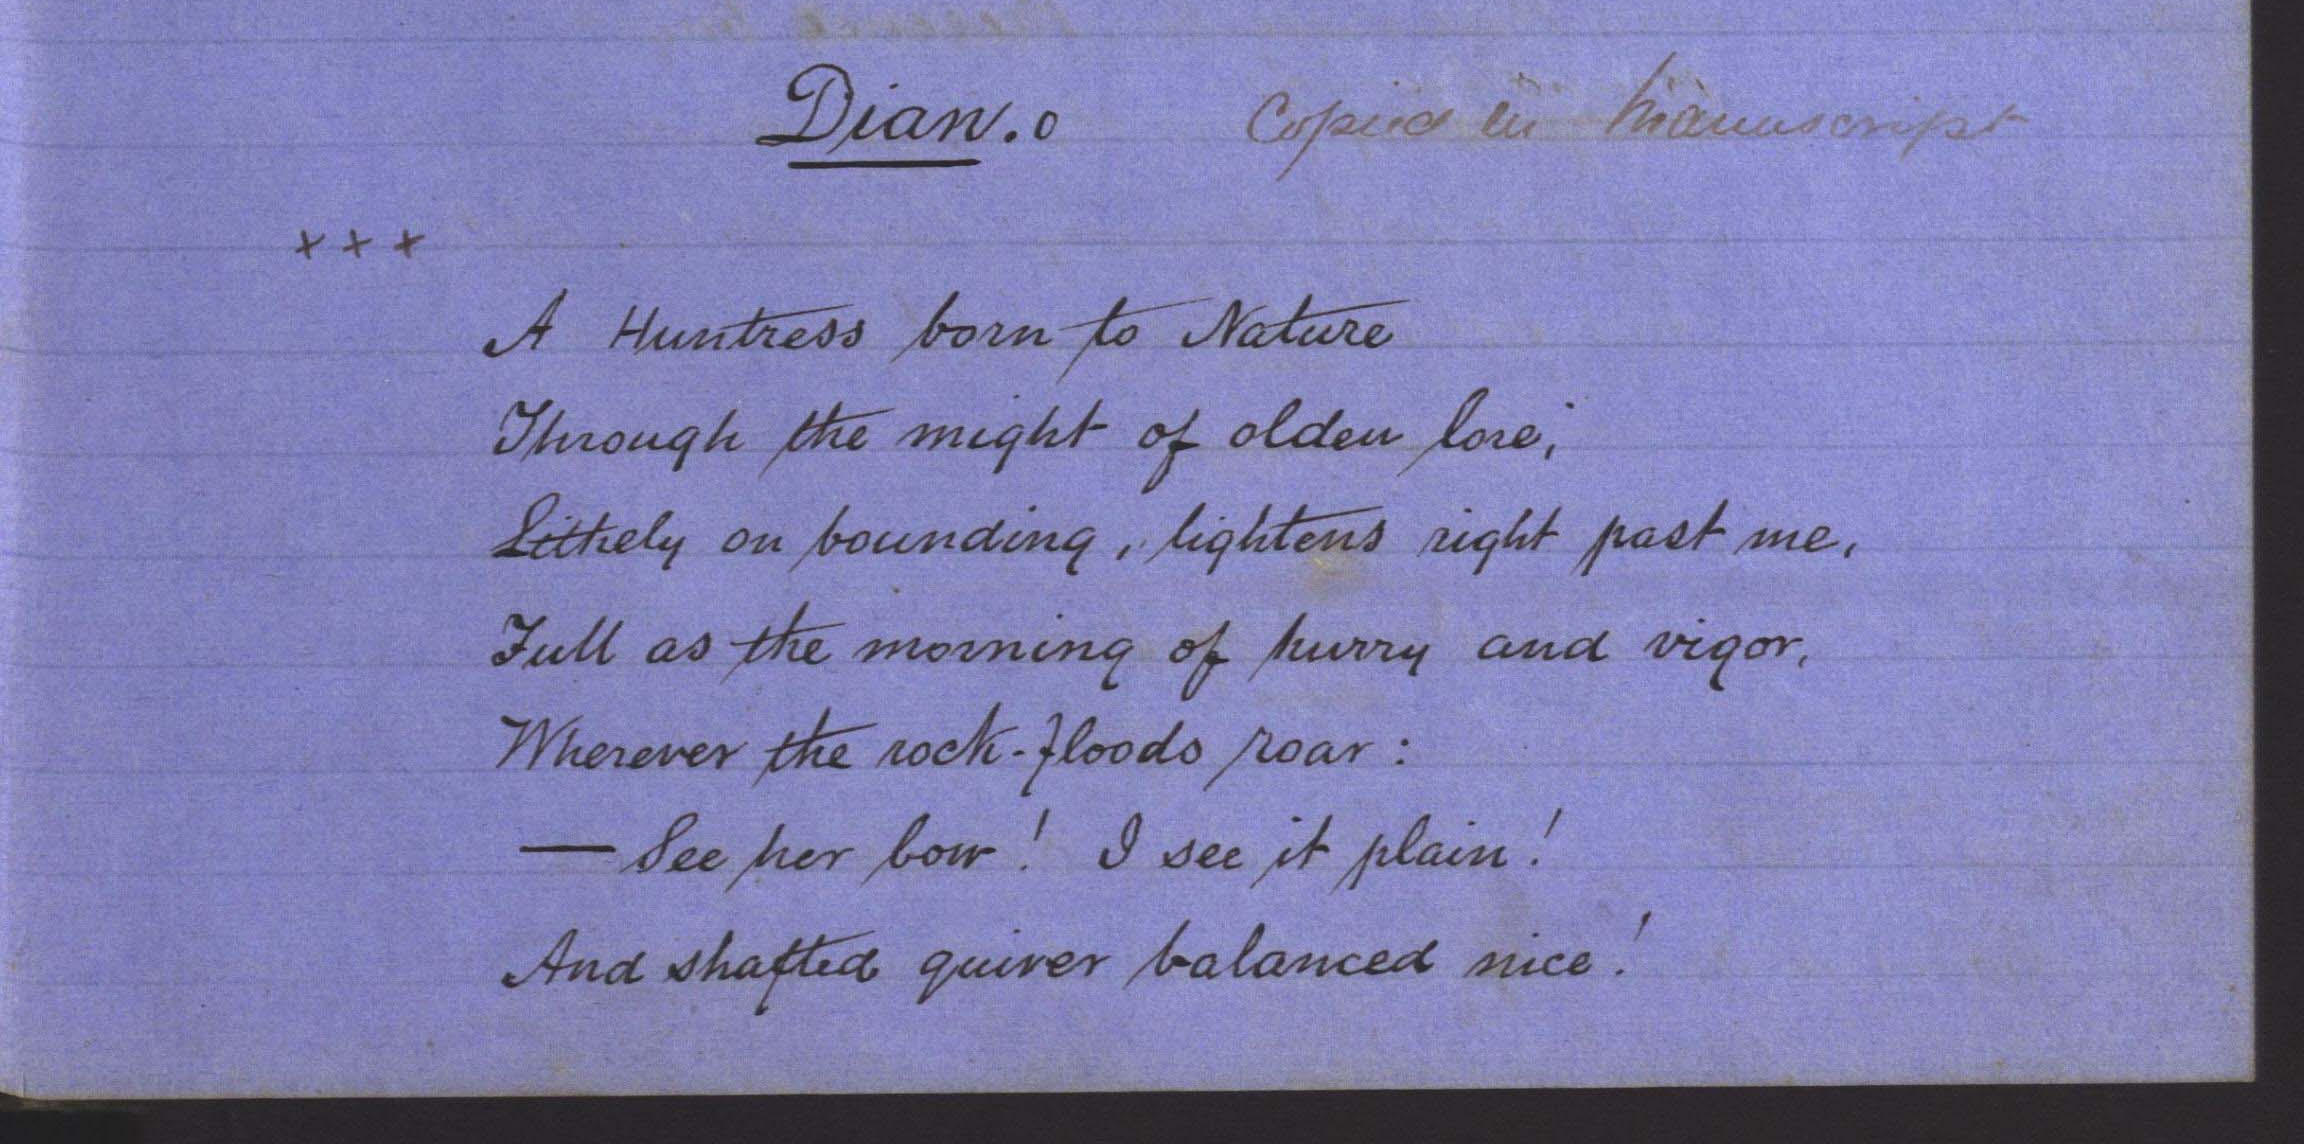 Dian.o Copied in Manuscript
+ + +
A Huntress born to Nature
Through the might of olden lore;
Lithely on bounding, lightens right past me,
Full as the morning of hurry and vigor,
Wherever the rock-floods roar:
— See her bow! I see it plain!
And shafted quiver balanced nice!